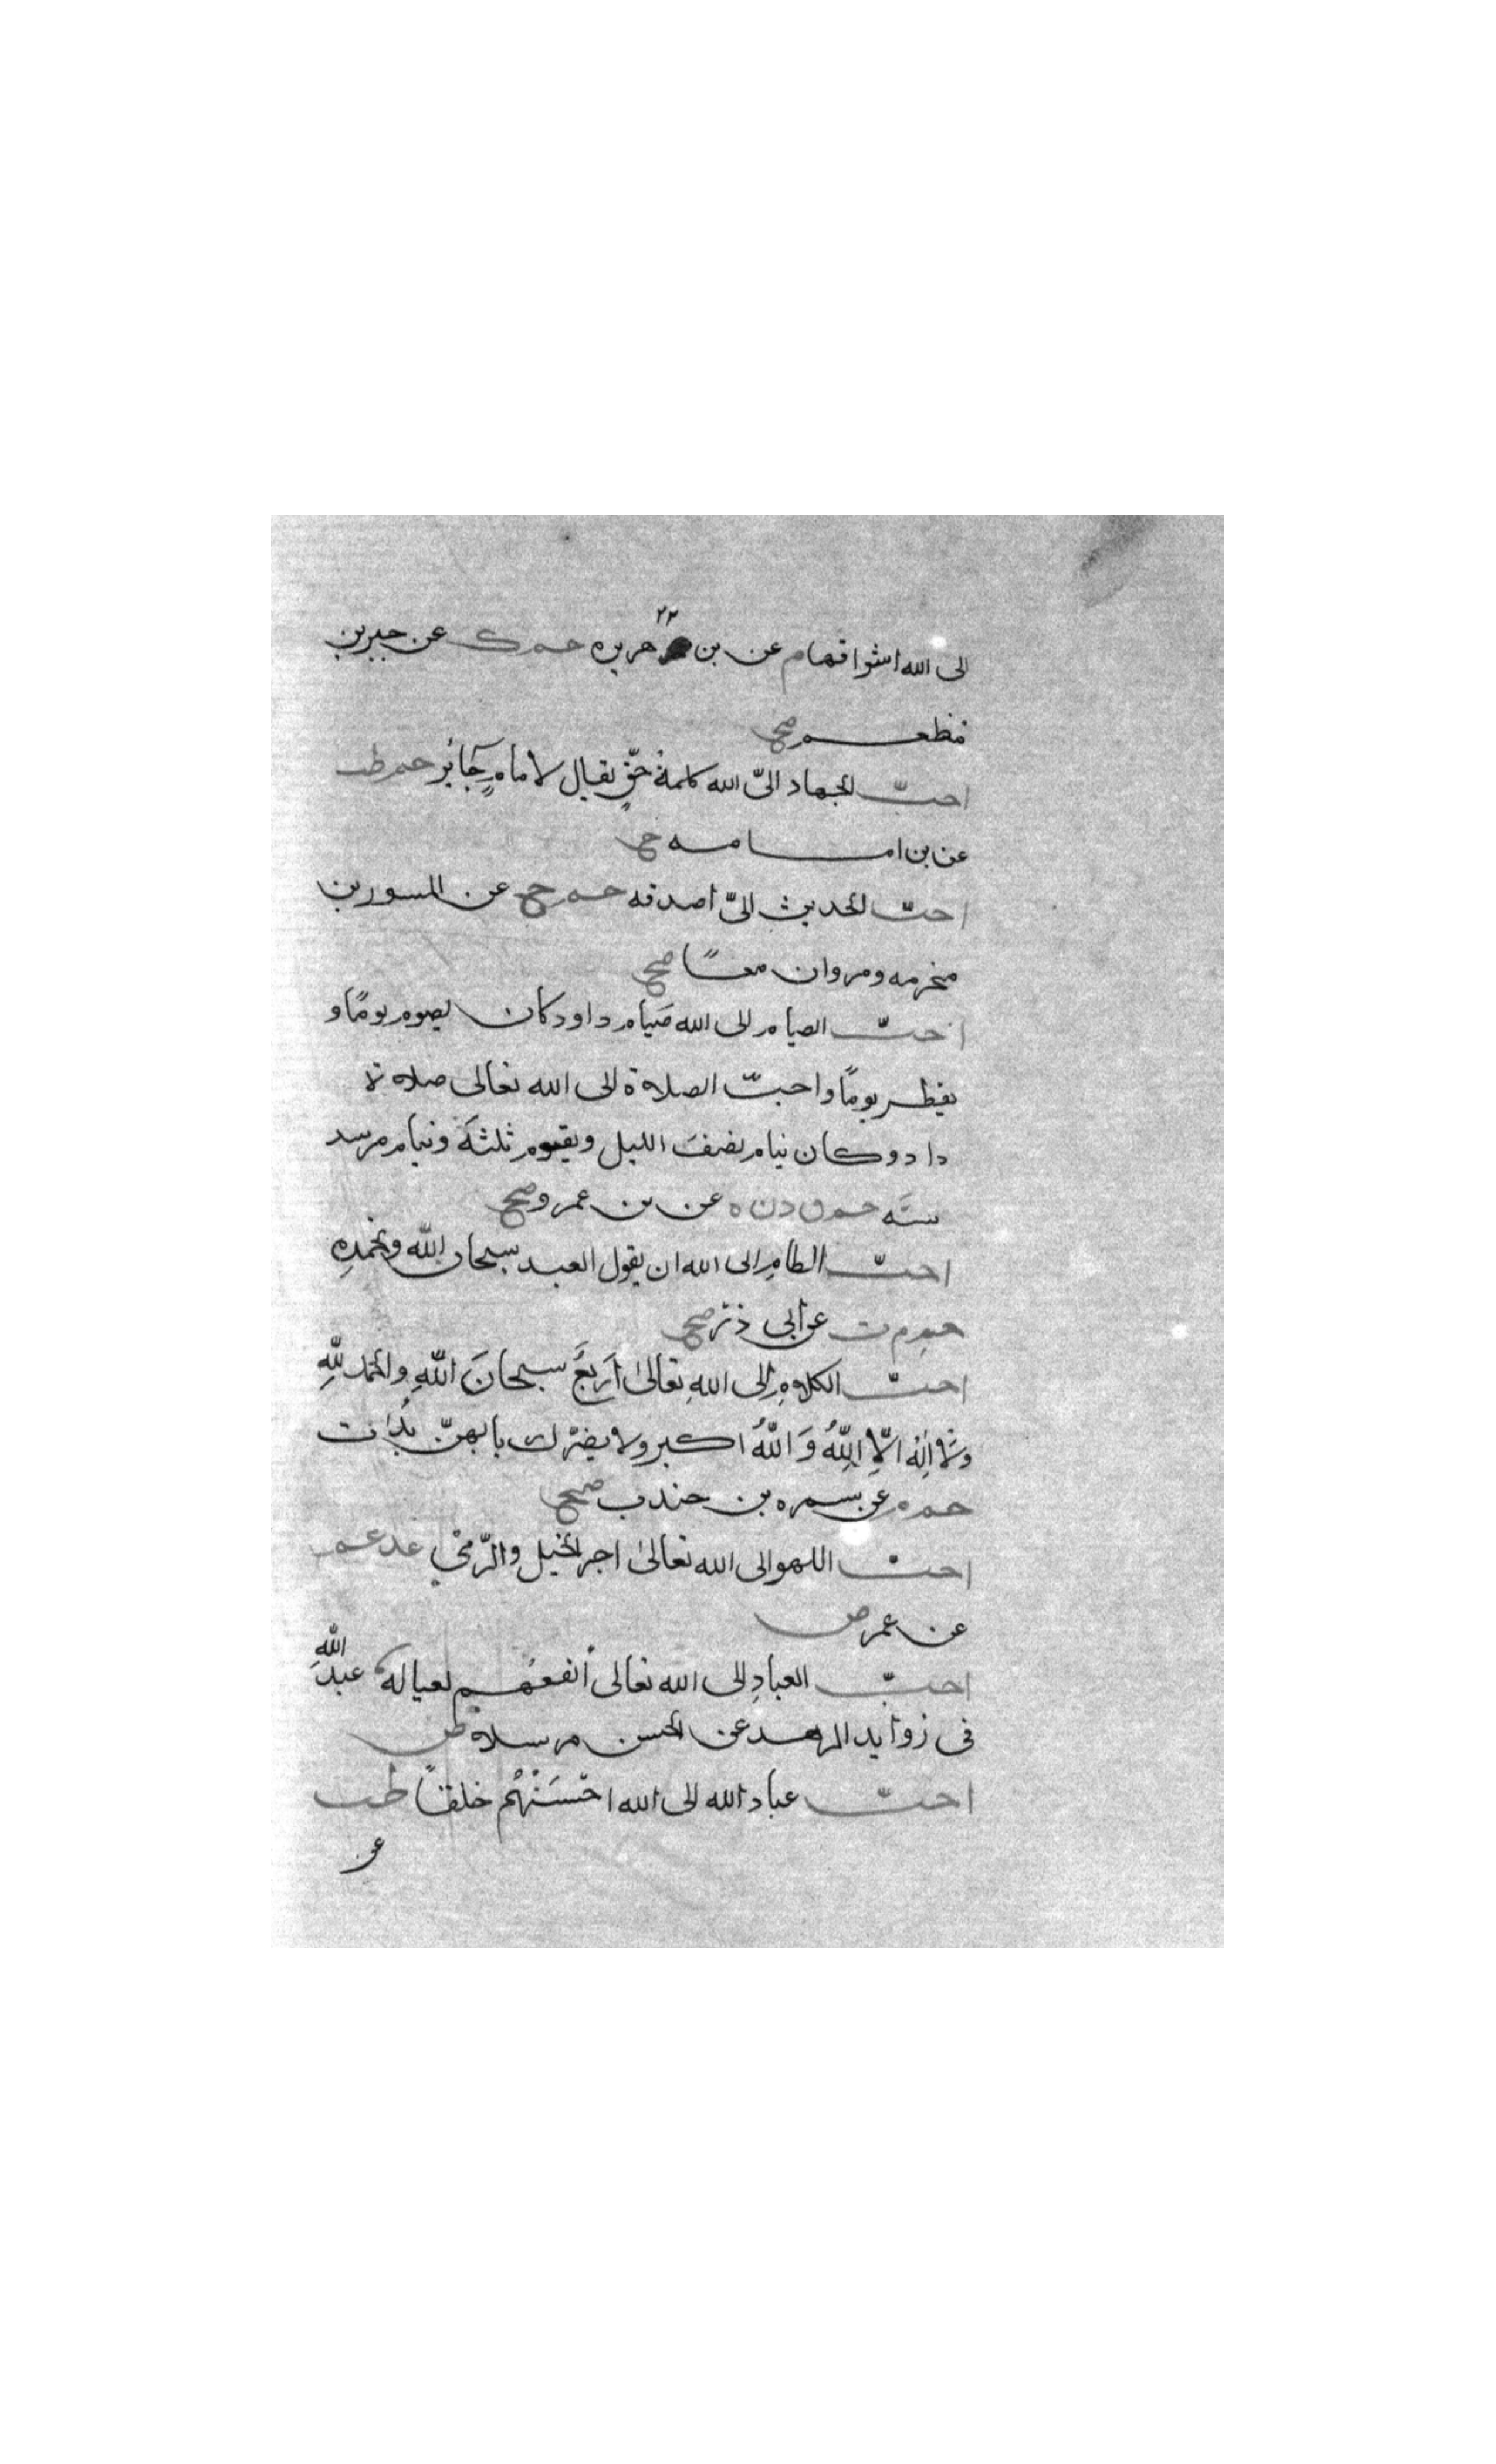 ٢٢
الى الله اسواقها م عن بن هريره حم ك عن جبير بن
مطعم صح
احبّ الجهاد الىّ الله كلمة حقٍ تقال لامامٍ جَائر حم طب
عن بن امامه ح
احبّ الحديث الىّ اصدقه حم خ عن المسور بن
مخرمه ومروان معًا صح
احبّ الصيام الى الله صَيام داود كان يصوم يومًا و
يفطر يومًا واحبّ الصلاة الى الله تعالى صلاة
داود وكان ينام نصف الليل ويقوم ثلثهَ وينام سد
سَه حم ق د ن ه عن بن عمرو صح
احبّ الى الله ان يقول العبد سبحان الله وبحمدِه
حم م ت عن ابى ذر صح
احبّ الكلامِ الى اللهِ تعَالىٰ اَربعَ سبحانَ اللّهِ والحمد للّهِ
وَلَا اِلٰه اِلّا اللّهُ وَاللّهُ اكبر ولا يضرّك بايهنّ بدَات
حم م عن سمره بن جندب صح
احبّ اللهو الى الله تعالىٰ اجر الخيل والرّمْي عد
عن عمر ض
احبّ العبادِ الى الله تعالى أنفعُهم لعياله عبدُ اللهِ
فى زوايد الزهد عن الحسن مرسلا ض
احبّ عباد الله الى الله احْسَنُهُمْ خلقًا طب
عن